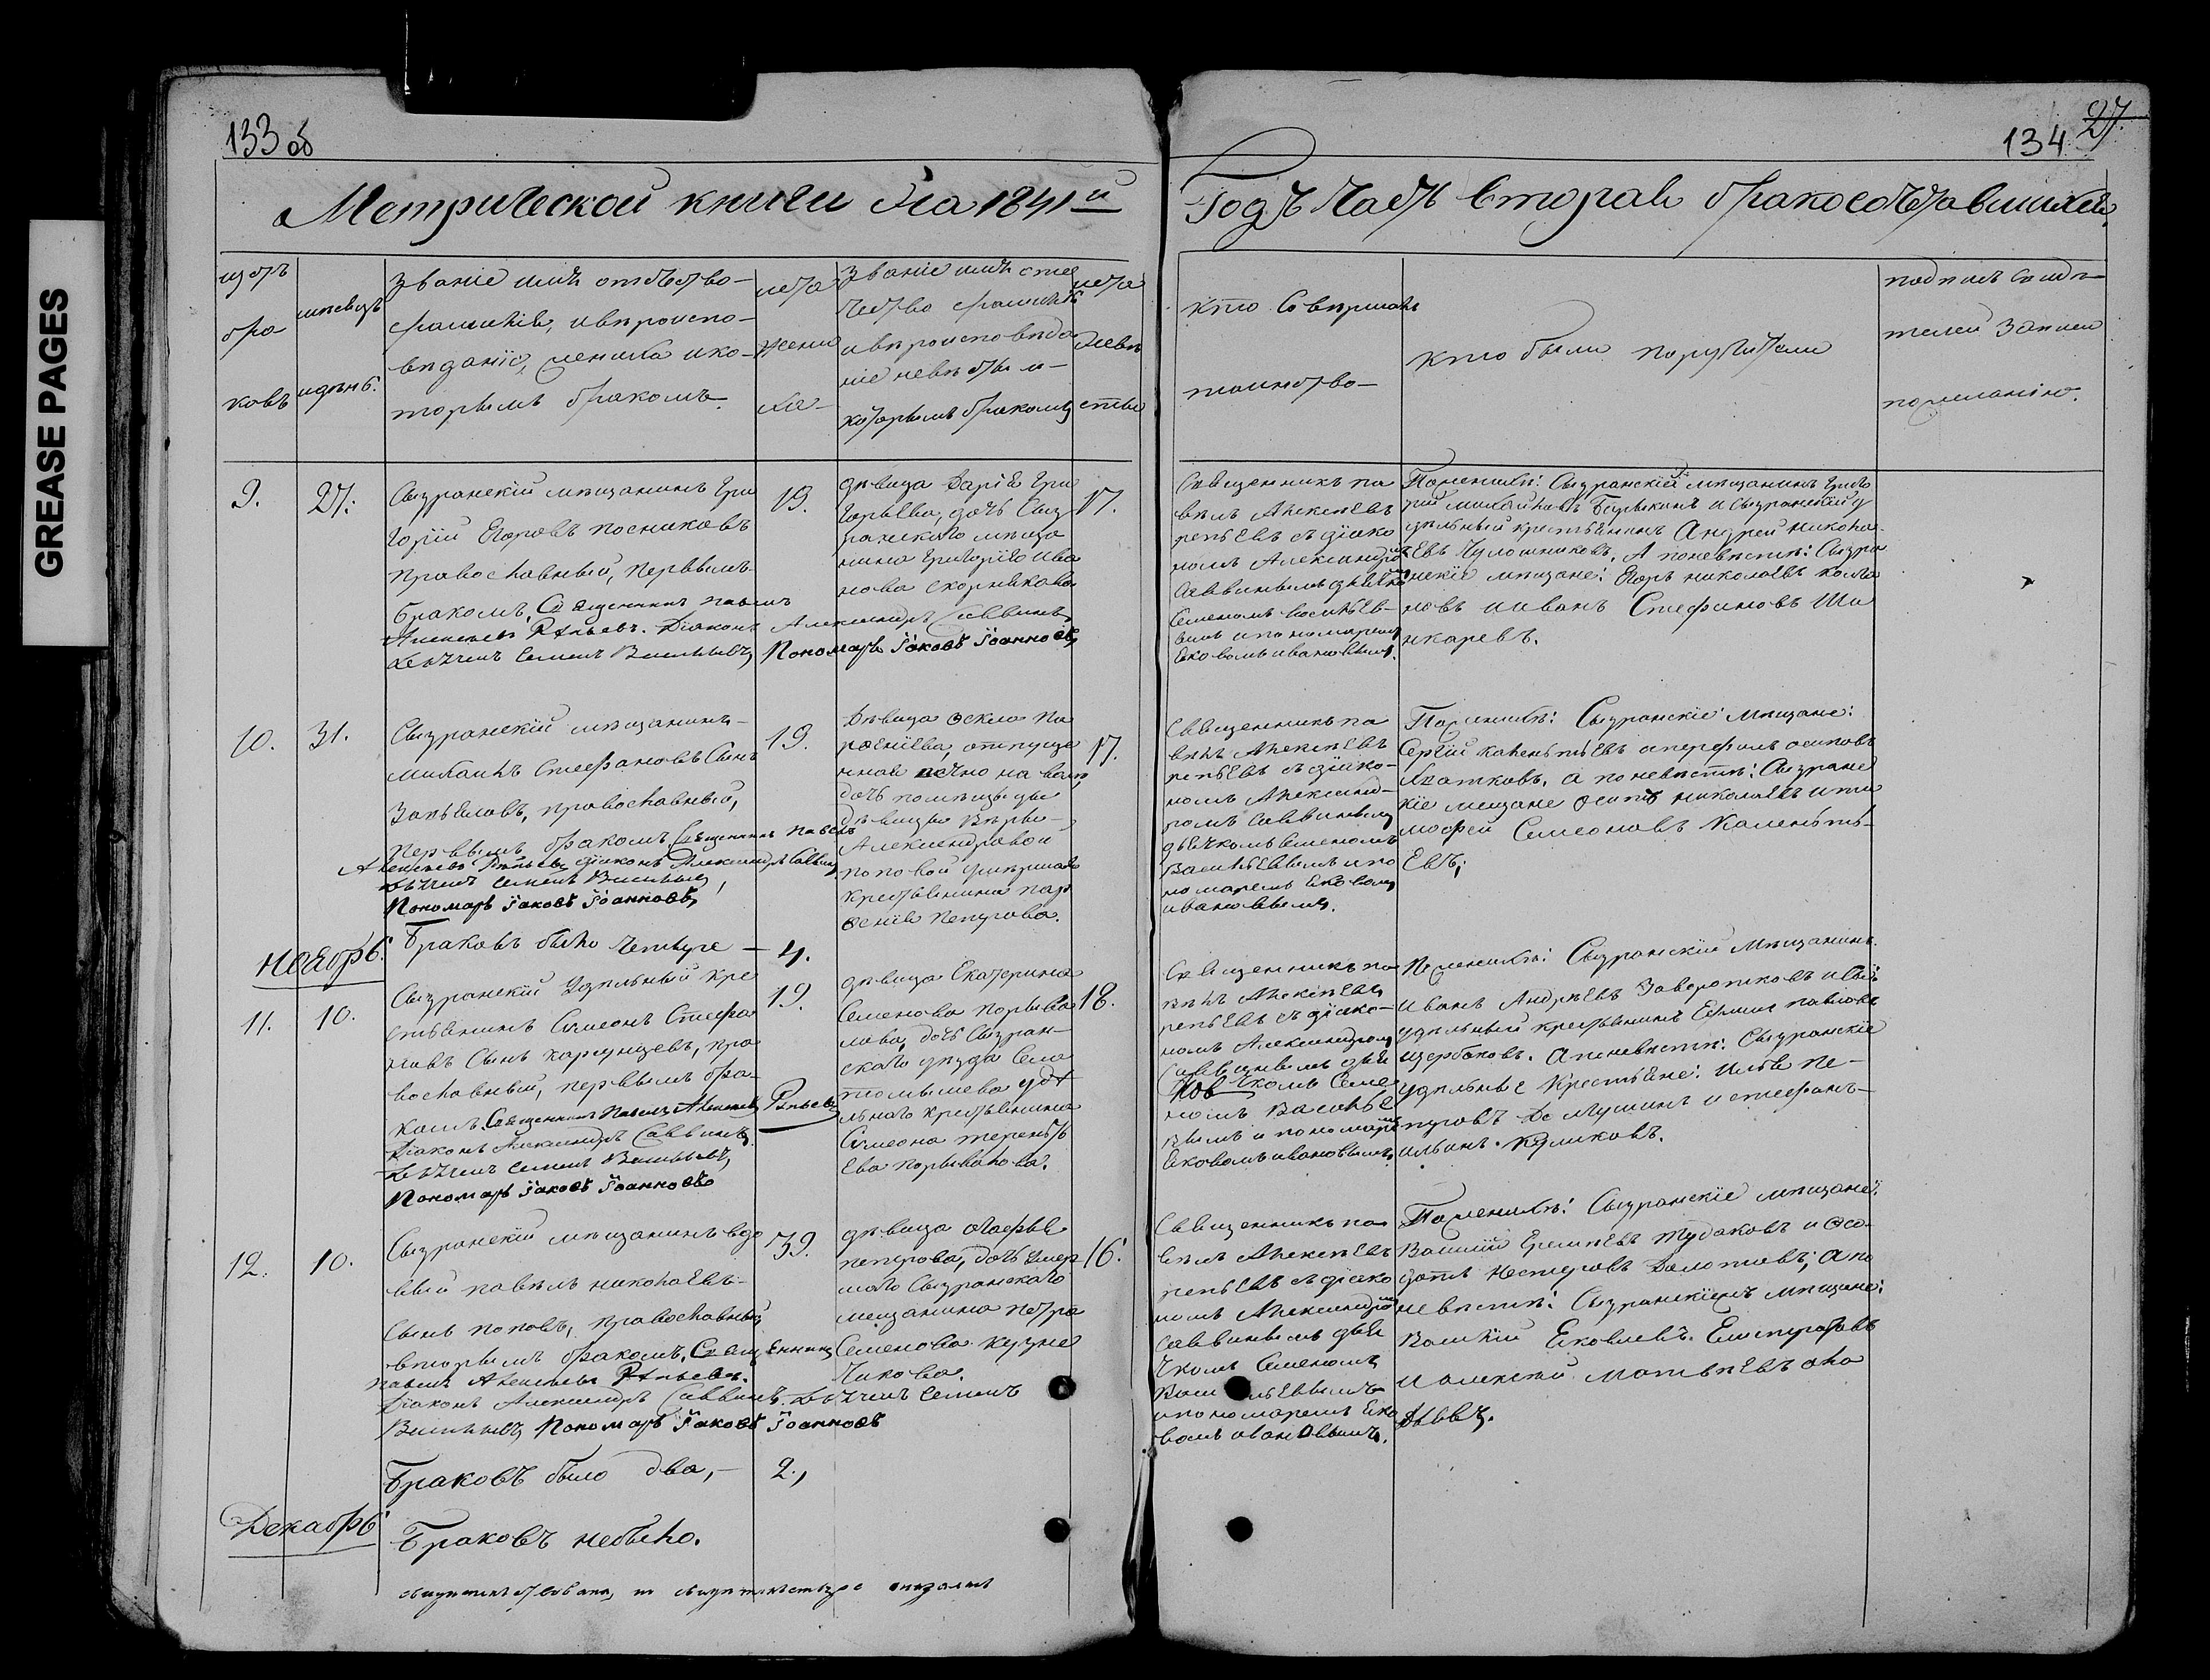 GREASE PAGES
133 об
134
27.
Метрической книги На 1841й
Годъ Часть вторая бракосочетавшихся
щетъ
бра
ковъ
месяцъ
и день.
Званіе имя отечество
фамилія, и вероиспо-
веданіе, жениха и ко-
торымъ бракомъ.
лета
жени
ха
Званіе имя оте
чество фамилія
и вероисповеда
ніе невесты и
которымъ бракомъ
лета
неве
сты
кто совершалъ
таинство
кто были поручители
подпись свиде-
телей записи
по желанію.
9.
27.
Сызранскій мещанинъ Гри
горій Егоровъ Посниковъ
православный, первымъ
бракомъ, Священникъ Павелъ
Алексеевъ Репьевъ. Діаконъ Александръ Саввинъ
Дьячекъ Семенъ Васильевъ
Пономарь Іаковъ Іоанновъ
19.
девица Дарія Гри
горьева, дочь Сыз
ранскаго меща
нина Григорія Ива
нова Скорнякова
17.
Священникъ Па
велъ Алексеевъ
Репьевъ съ діако
номъ Александромъ
Саввинымъ дьячкомъ
Семеномъ Василье-
вымъ и пономаремъ
Яковомъ Ивановымъ.
По женихе: Сызранскій мещанинъ Григо
рій Михайловъ и Сызранскій у
дельный крестьянинъ Андрей Никола-
евъ Чулошниковъ, А по невесте: Сызра
нскіе мещане: Егоръ Николаевъ
и Иванъ Стефановъ Ши
нкаревъ.
10.
31.
Сызранскій мещанинъ
Михаилъ Стефановъ Сынъ
православный,
первымъ бракомъ. Священникъ Павелъ
Алексеевъ Репьевъ діаконъ Александръ Саввинъ
Дьячекъ Семенъ Васильевъ,
Пономарь Іаковъ Іоанновъ
19.
Девица Фекла Па
рфеніева, отпуще
нная вечно на волю
дочь помещицы
девицы Веры
Александровой
Поповой умершаго
крестьянина Пар
фенія Петрова.
17.
Священникъ Па
велъ Алексеевъ
Репьевъ съ діако-
номъ Александ-
ромъ Саввинымъ
дьячкомъ Семеномъ
Васильевымъ и по
номаремъ Яковомъ
Ивановымъ.
По женихе: Сызранскіе мещане:
Сергій Каленьтьевъ и Перфилъ Осиповъ
а по невесте: Сызранс
кіе мещане Осипъ Николаевъ и Ти
мофей Семеоновъ Каленьть-
евъ;
Браковъ было четыре — 4.
Ноябрь.
11.
10.
Сызранскій Удельный кре
стьянинъ Симеонъ Стефа
новъ Сынъ Карсунцевъ, пра
вославный, первымъ бра-
комъ. Священникъ Павелъ Алексеевъ Репьевъ
Діаконъ Александръ Саввинъ
Дьячекъ Семенъ Васильевъ,
Пономарь Іаковъ Іоанновъ
19.
девица Екатерина
Семенова Порыва
лова, дочь Сызран-
скаго уезда Села
Томышева уде
льнаго крестьянина
Симеона Теренть
ева Порывалова.
18.
Священникъ Па
велъ Алексеевъ
Репьевъ съ діако-
номъ Александромъ
Саввинымъ дья
чкомъ Семе
номъ Василье
вымъ и пономаремъ
Яковомъ Ивановымъ
По женихе: Сызранскій мещанинъ
Иванъ Андреевъ Заворотковъ и Сыз
удельный крестьянинъ Ермилъ Павловъ
Щербаковъ. А по невесте: Сызранскіе
удельные крестьяне: Илья Пе-
тровъ и Стефанъ
Куликовъ.
12.
10.
Сызранскій мещанинъ вдо
вый Павелъ Николаевъ
Сынъ Поповъ, православный
вторымъ бракомъ. Священникъ
Павелъ Алексеевъ Репьевъ.
Діаконъ Александръ Саввинъ. Дьячекъ Семенъ
Васильевъ, Пономарь Іаковъ Іоанновъ
39.
девица Агафья
Петрова, дочь умер
шаго Сызранскаго
мещанина Петра
Семенова Кузне
чикова.
16.
Священникъ Па
велъ Алексеевъ
Репьевъ съ діако
номъ Александромъ
Саввинымъ дья
чкомъ Семеномъ
Васильевымъ
и пономаремъ Яко
вомъ Ивановымъ.
По женихе: Сызранскіе мещане:
Василій Еремеевъ Тудаковъ и Фео
дотъ Нестеровъ Долотовъ; а по
невесте: Сызранскіе мещане:
Василій Яковлевъ Елистратовъ
и Алексей Матвеевъ
Браковъ было два, — 2.,
Декабрь
Браковъ небыло.